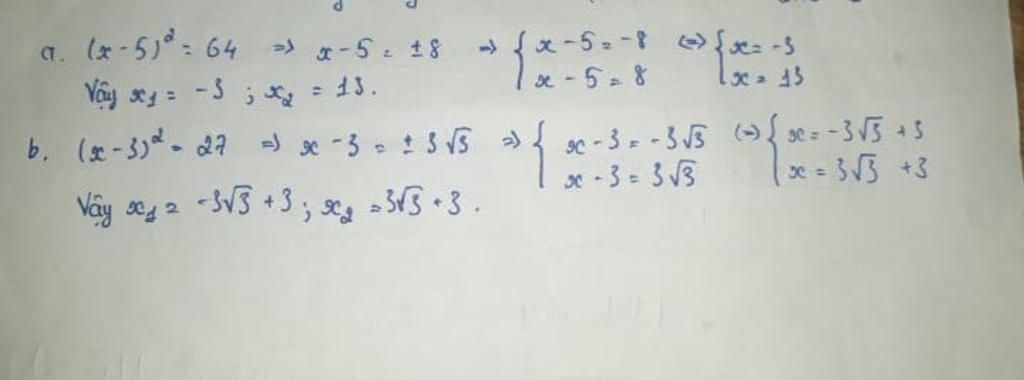 a. (x-5)² = 64 => x-5 = ±8 => { x-5 = -8 <=> { x = -3
x-5 = 8 x = 13
Vậy x₁ = -3 ; x₂ = 13.
b. (x-3)² = 27 => x-3 = ±3√3 => { x-3 = -3√3 <=> { x = -3√3 +3
x-3 = 3√3 x = 3√3 +3
Vậy x₁ = -3√3 +3 ; x₂ = 3√3 +3.